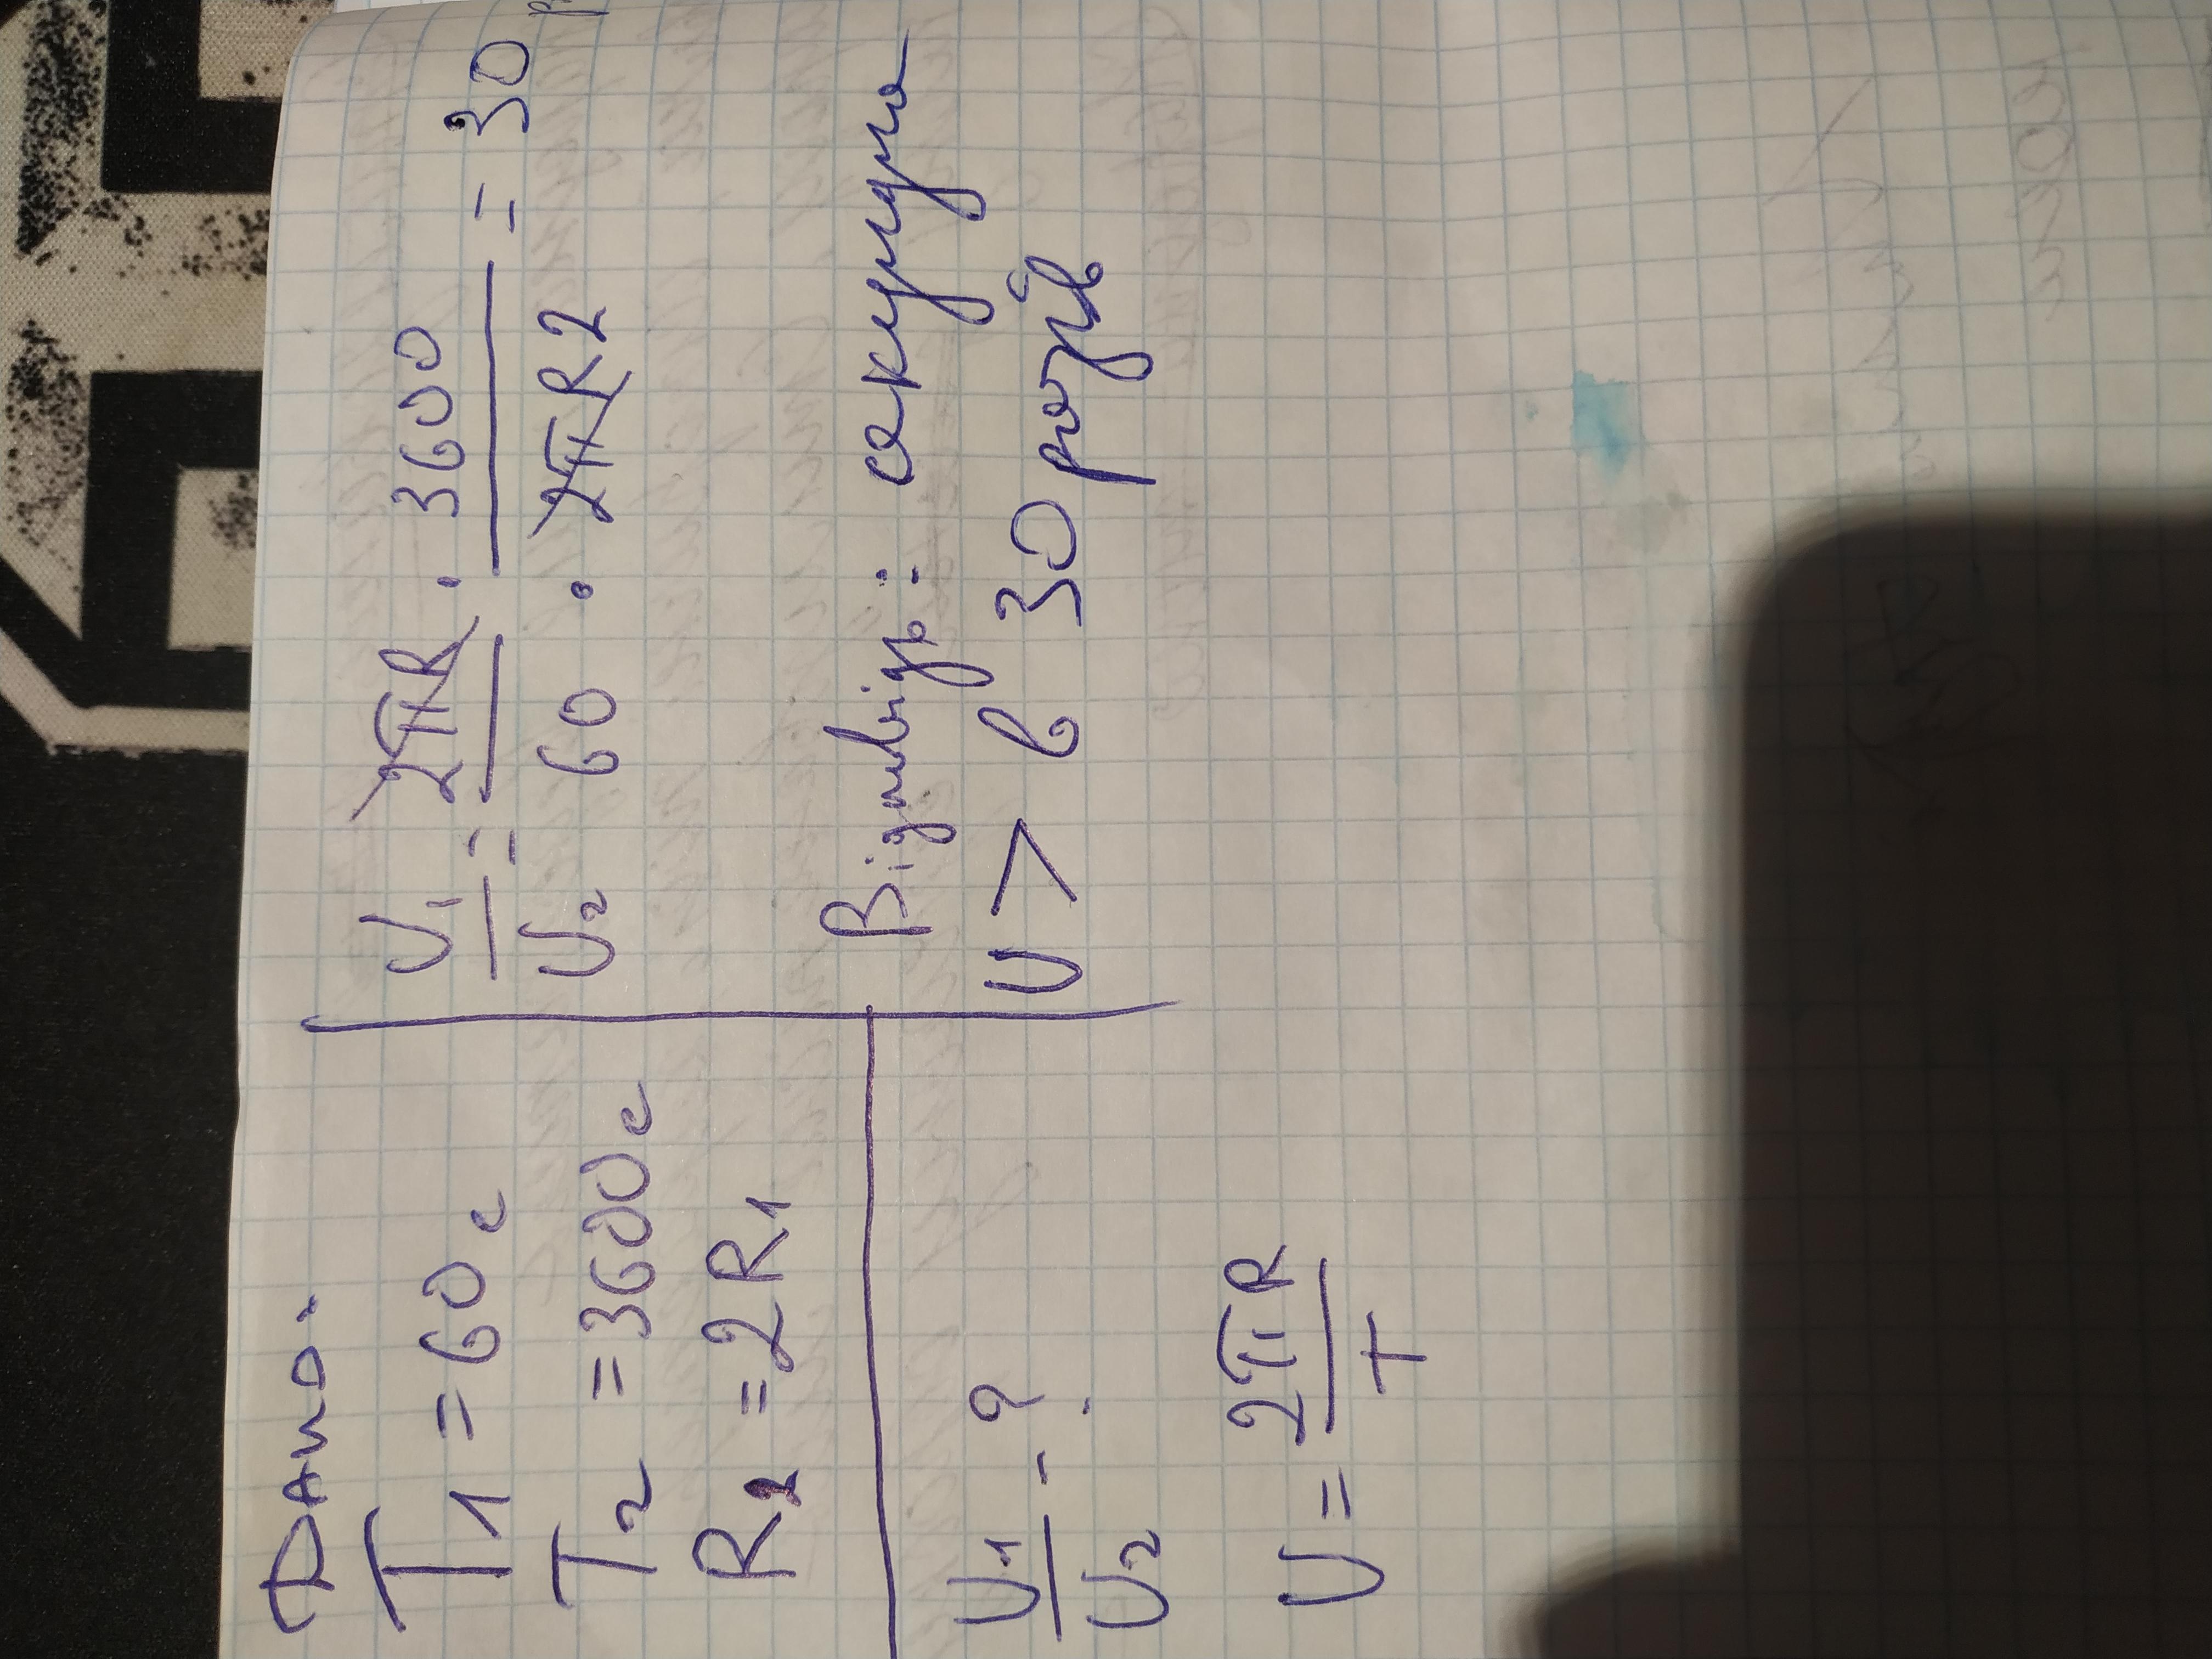 Дано:
T1 = 60 c
T2 = 3600 c
R2 = 2R1
U1/U2 - ?
U = 2πR/T
U1/U2 = 2πR · 3600 / 60 · 2πR2 = 30
Відповідь: секундно
U > в 30 разів